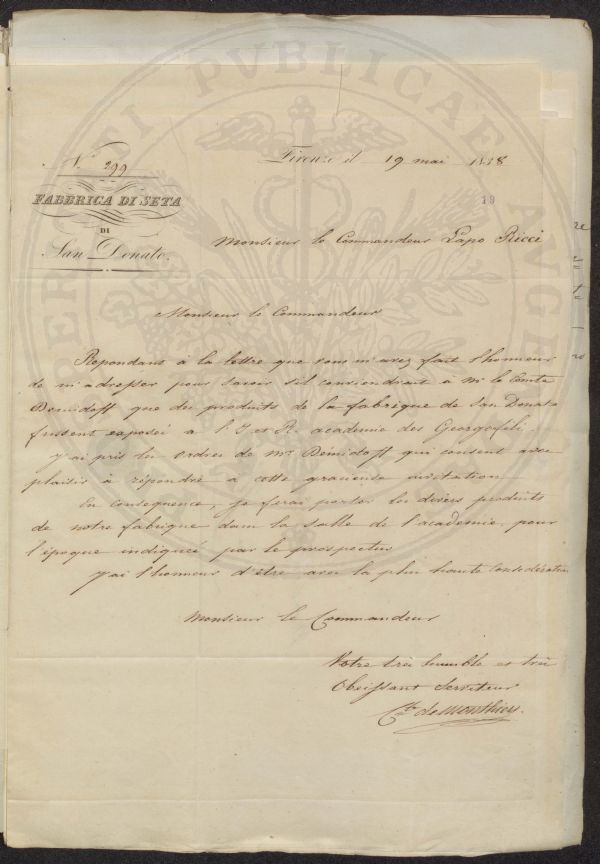 N. 299
FABBRICA DI SETA
DI
San Donato.
Firenze il 19 mai 1838
19
Monsieur le Commandeur Lapo Ricci
Monsieur le Commandeur
Repondant à la lettre que vous m'avez fait l'honneur
de m'adresser pour savoir s'il conviendrait à Mr le Comte
Demidoff que des produits de la fabrique de San Donato
fussent exposés a l'I et R. academie des Georgofili.
J'ai pris les ordres de Mr Démidoff qui consent avec
plaisir à répondre à cette gracieuse invitation
En consequence, je ferai porter les divers produits
de notre fabrique dans la salle de l'academie, pour
l'époque indiquée par le prospectus
J'ai l'honneur d'être avec la plus haute consideration
Monsieur le Commandeur
Votre très humble et très
Obeissant Serviteur